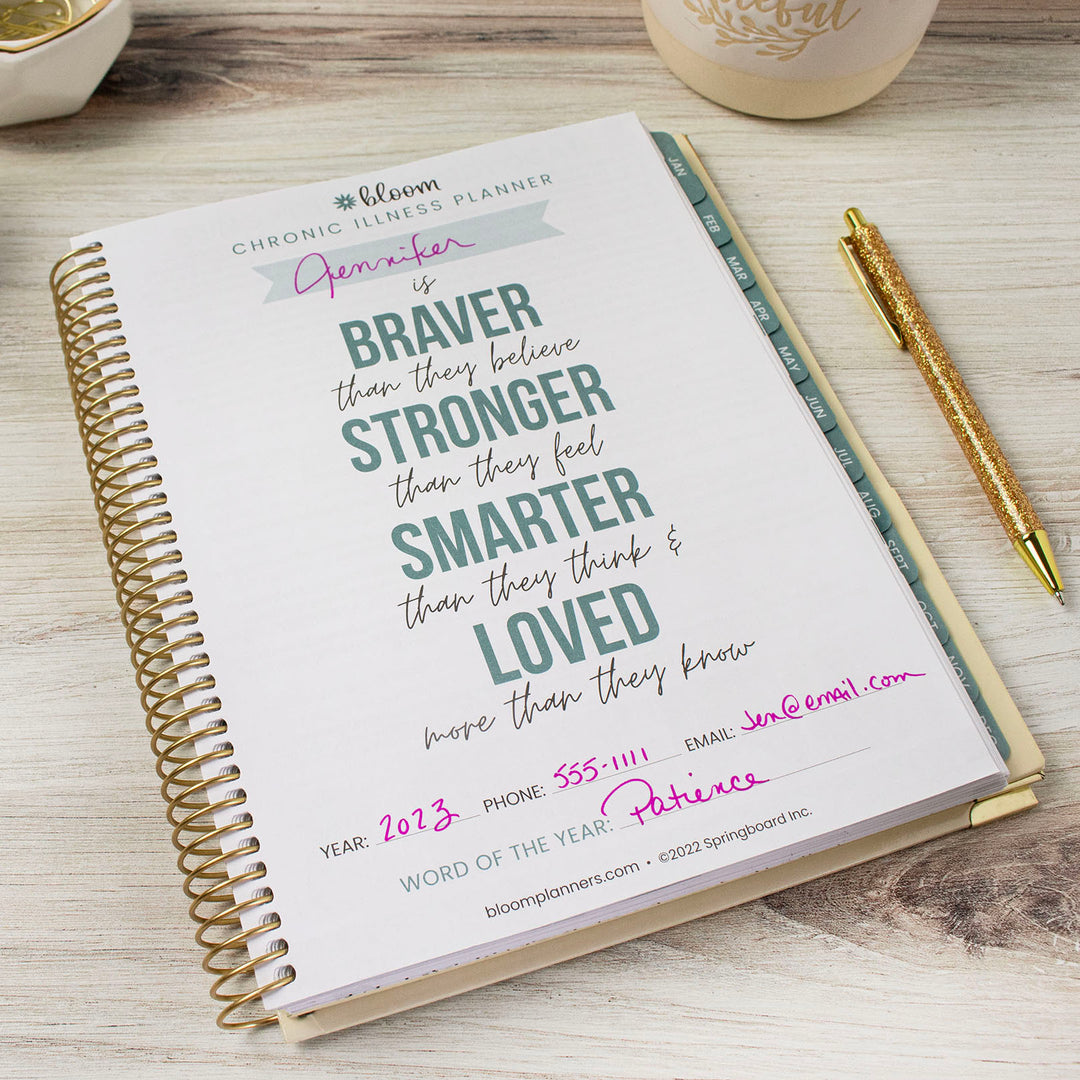 bloom
CHRONIC ILLNESS PLANNER
Jenniker
is
BRAVER
than they believe
STRONGER
than they feel
SMARTER
than they think &
LOVED
more than they know
YEAR: 2023 PHONE: 555-1111 EMAIL: Jen@email.com
WORD OF THE YEAR: Patience
bloomplanners.com • ©2022 Springboard Inc.
JAN
FEB
MAR
APR
MAY
JUN
JUL
AUG
SEPT
OCT
NOV
DEC